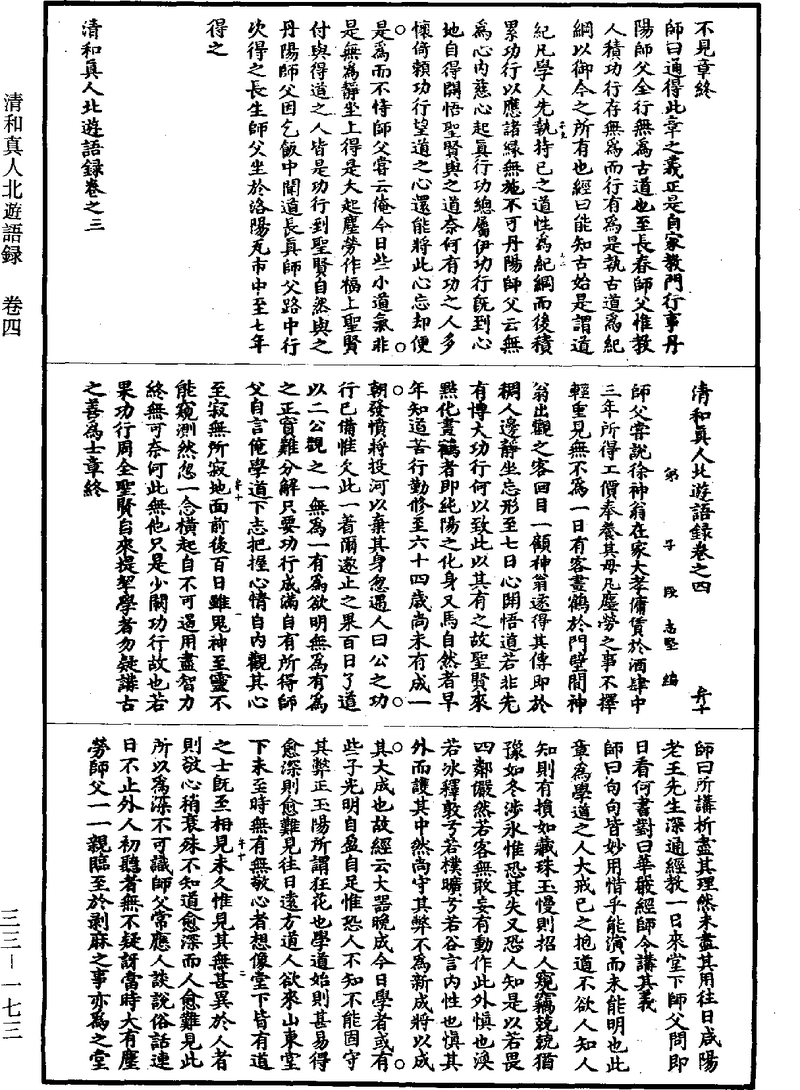 不見章終
師曰通得此章之義正是自家教門行事丹
陽師父全行無為古道也至長春師父惟教
人積功行存無為而行有為是執古道為紀
綱以御今之所有也經曰能知古始是謂道
紀凡學人先執持已之道性為紀綱而後積
累功行以應諸緣無施不可丹陽師父云無
為心內慈心起真行功總屬伊功行既到心
地自得開悟聖賢與之道奈何有功之人多
懷倚賴功行望道之心還能將此心忘却便
是為而不恃師父嘗云俺今日些小道氣非
是無為靜坐上得是大起塵勞作福上聖賢
付與得道之人皆是功行到聖賢自然與之
丹陽師父因乞飯中聞道長真師父路中行
次得之長生師父坐於洛陽瓦市中至七年
得之
清和真人北遊語録卷之三
清和真人北遊語録卷之四
弟子段志堅編
弁十
師父嘗說徐神翁在家大孝傭賃於酒肆中
三年所得工價奉養其母凡塵勞之事不擇
輕重見無不為一日有客畫鶴於門壁間神
翁出觀之客回目一顧神翁遂得其傳即於
稠人邊靜坐忘形至七日心開悟道若非先
有博大功行何以致此以其有之故聖賢來
點化畫鶴者即純陽之化身又馬自然者早
年知道苦行勤修至六十四歲尚未有成一
朝發憤將投河以棄其身忽遇人曰公之功
行已備惟欠此一着爾遂止之果百日了道
以二公觀之一無為一有為欲明無為有為
之正實難分解只要功行成滿自有所得師
父自言俺學道下志把握心情自內觀其心
至寂無所寂地面前後百日雖鬼神至靈不
能窺測然忽一念橫起自不可遏用盡智力
終無可奈何此無他只是少闕功行故也若
果功行周全聖賢自來提挈學者勿疑講古
之善為士章終
師曰所講析盡其理然未盡其用往日咸陽
老王先生深通經教一日來堂下師父問即
日看何書對曰華嚴經師令講其義
師曰句句皆妙用惜乎能演而未能明也此
章為學道之人大戒已之抱道不欲人知人
知則有損如藏珠玉慢則招人窺竊兢兢猶
豫如冬涉氷惟恐其失又恐人知是以若畏
四鄰儼然若客無敢妄有動作此外慎也渙
若冰釋敦兮若樸曠兮若谷言內性也慎其
外而護其中然尚守其弊不為新成將以成
其大成也故經云大器晚成今日學者或有
些子光明自盈自足惟恐人不知不能固守
其弊正玉陽所謂狂花也學道始則甚易得
愈深則愈難見往日遠方道人欲來山東堂
下未至時無有無敬心者想像堂下皆有道
之士既至相見未久惟見其無甚異於人者
則敬心稍衰殊不知道愈深而人愈難見此
所以為深不可識師父常應人談說俗話連
日不止外人初聽者無不疑訝當時大有塵
勞師父一一親臨至於剥麻之事亦為之堂
清和真人北遊語録 卷四
三三—一七三